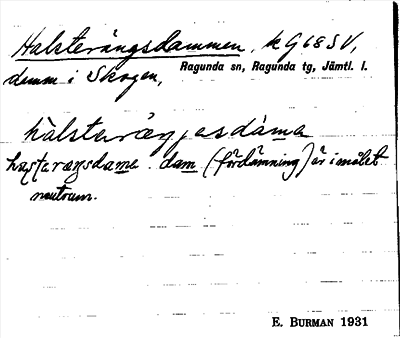 Halsterängsdammen, k G68SV,
damm i Skogen, Ragunda sn, Ragunda tg, Jämtl. l.
hàlsteræŋjəsdáma
hastəræŋsdama. dam (fördämning) är i målet
neutrum.
E. BURMAN 1931